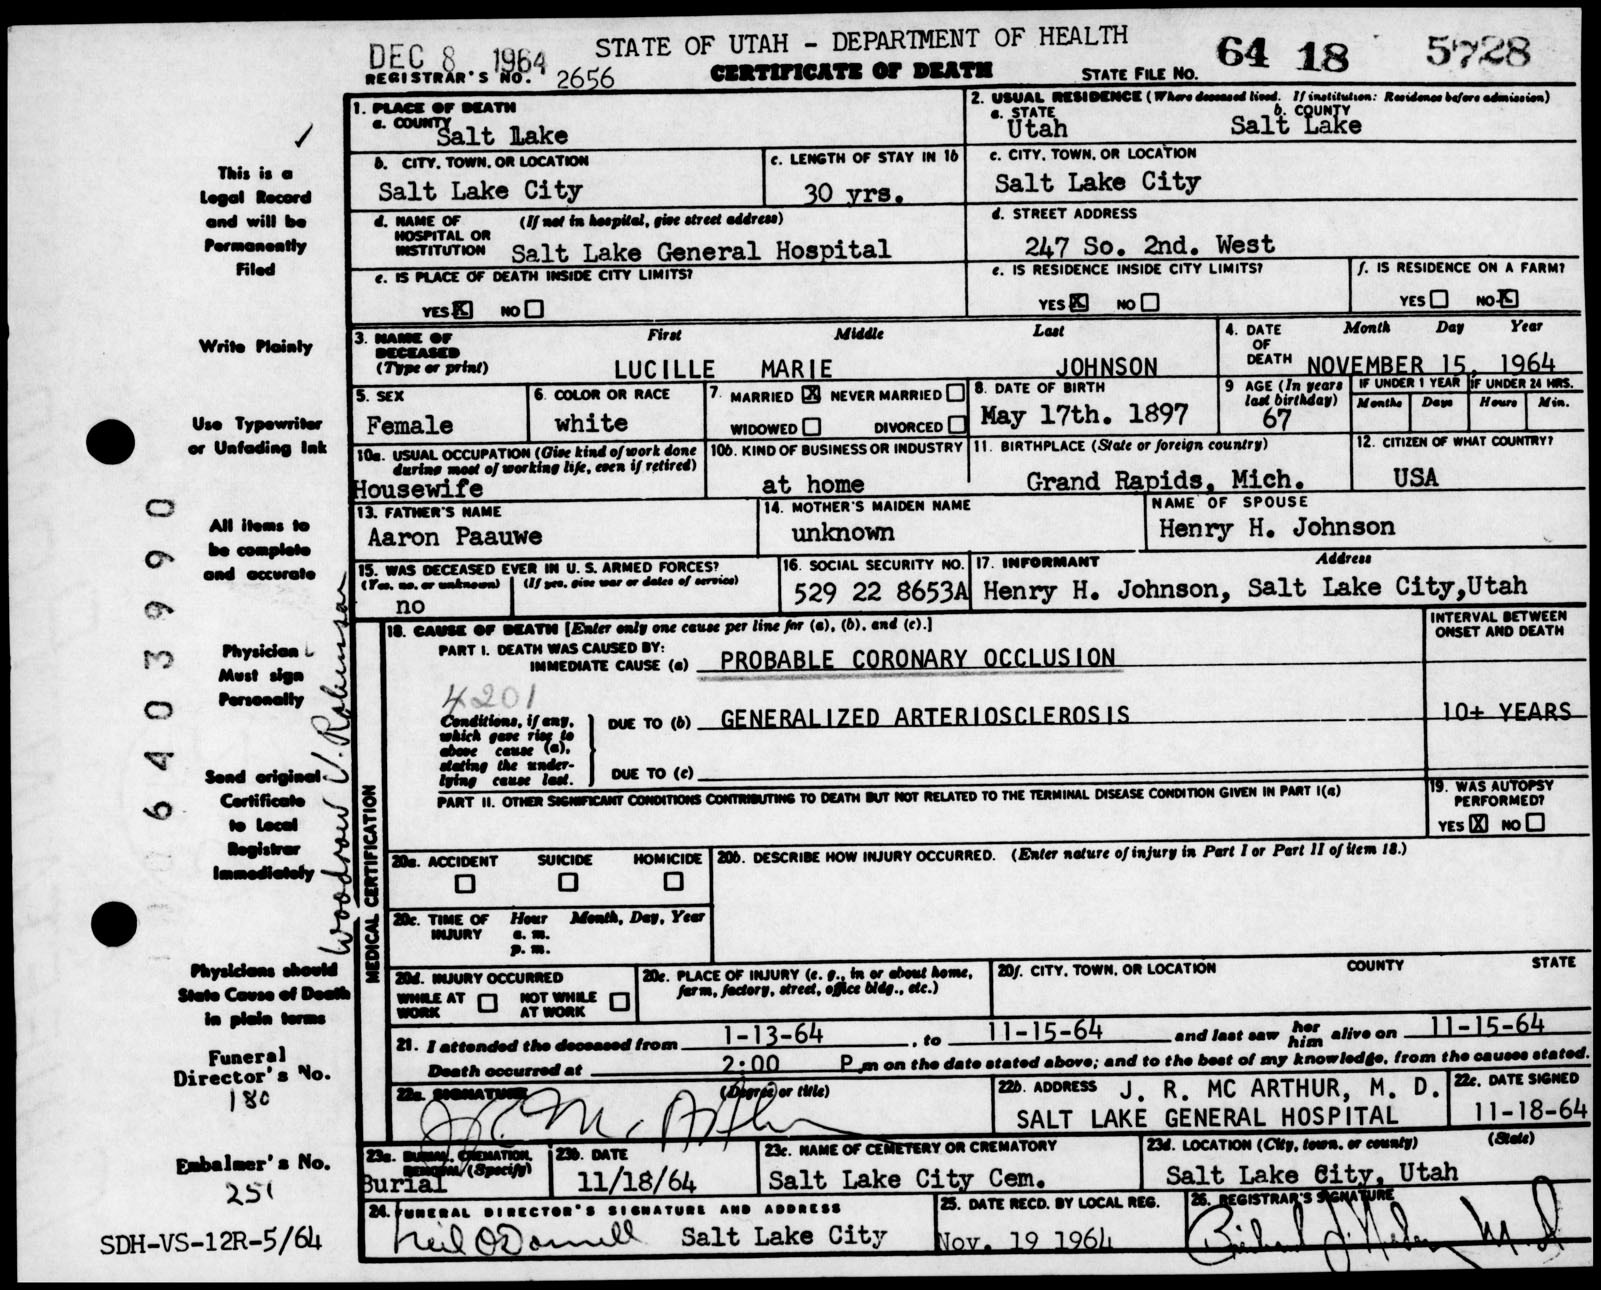 DEC 8 1964 STATE OF UTAH - DEPARTMENT OF HEALTH 64 18 5728
REGISTRAR'S NO. 2656 CERTIFICATE OF DEATH STATE FILE NO.
1. PLACE OF DEATH
a. COUNTY
Salt Lake
2. USUAL RESIDENCE (Where deceased lived. If institution: Residence before admission)
a. STATE b. COUNTY
Utah Salt Lake
b. CITY, TOWN, OR LOCATION
Salt Lake City
c. LENGTH OF STAY IN 1b
30 yrs.
c. CITY, TOWN, OR LOCATION
Salt Lake City
d. NAME OF HOSPITAL OR INSTITUTION (If not in hospital, give street address)
Salt Lake General Hospital
d. STREET ADDRESS
247 So. 2nd. West
e. IS PLACE OF DEATH INSIDE CITY LIMITS?
YES X NO
e. IS RESIDENCE INSIDE CITY LIMITS?
YES X NO
f. IS RESIDENCE ON A FARM?
YES NO X
3. NAME OF DECEASED (Type or print) First Middle Last
LUCILLE MARIE JOHNSON
4. DATE OF DEATH Month Day Year
NOVEMBER 15, 1964
5. SEX
Female
6. COLOR OR RACE
white
7. MARRIED X NEVER MARRIED
WIDOWED DIVORCED
8. DATE OF BIRTH
May 17th. 1897
9 AGE (In years last birthday)
67
IF UNDER 1 YEAR IF UNDER 24 HRS.
Months Days Hours Min.
10a. USUAL OCCUPATION (Give kind of work done during most of working life, even if retired)
Housewife
10b. KIND OF BUSINESS OR INDUSTRY
at home
11. BIRTHPLACE (State or foreign country)
Grand Rapids, Mich.
12. CITIZEN OF WHAT COUNTRY?
USA
13. FATHER'S NAME
Aaron Paauwe
14. MOTHER'S MAIDEN NAME
unknown
NAME OF SPOUSE
Henry H. Johnson
15. WAS DECEASED EVER IN U. S. ARMED FORCES?
(Yes, no, or unknown) (If yes, give war or dates of service)
no
16. SOCIAL SECURITY NO.
529 22 8653A
17. INFORMANT Address
Henry H. Johnson, Salt Lake City,Utah
18. CAUSE OF DEATH [Enter only one cause per line for (a), (b), and (c).]
INTERVAL BETWEEN ONSET AND DEATH
PART I. DEATH WAS CAUSED BY:
IMMEDIATE CAUSE (a) PROBABLE CORONARY OCCLUSION
4201
Conditions, if any, which gave rise to above cause (a), stating the underlying cause last.
DUE TO (b) GENERALIZED ARTERIOSCLEROSIS 10+ YEARS
DUE TO (c)
PART II. OTHER SIGNIFICANT CONDITIONS CONTRIBUTING TO DEATH BUT NOT RELATED TO THE TERMINAL DISEASE CONDITION GIVEN IN PART I(a)
19. WAS AUTOPSY PERFORMED?
YES X NO
MEDICAL CERTIFICATION
20a. ACCIDENT SUICIDE HOMICIDE
20b. DESCRIBE HOW INJURY OCCURRED. (Enter nature of injury in Part I or Part II of item 18.)
20c. TIME OF INJURY Hour Month, Day, Year
a. m.
p. m.
20d. INJURY OCCURRED
WHILE AT WORK NOT WHILE AT WORK
20e. PLACE OF INJURY (e. g., in or about home, farm, factory, street, office bldg., etc.)
20f. CITY, TOWN, OR LOCATION COUNTY STATE
21. I attended the deceased from 1-13-64, to 11-15-64 and last saw her him alive on 11-15-64
Death occurred at 2:00 P m on the date stated above; and to the best of my knowledge, from the causes stated.
22a. SIGNATURE (Degree or title)
J R Mc Arthur
22b. ADDRESS J. R. MC ARTHUR, M. D.
SALT LAKE GENERAL HOSPITAL
22c. DATE SIGNED
11-18-64
23a. BURIAL, CREMATION, REMOVAL (Specify)
Burial
23b. DATE
11/18/64
23c. NAME OF CEMETERY OR CREMATORY
Salt Lake City Cem.
23d. LOCATION (City, town, or county) (State)
Salt Lake City, Utah
24. FUNERAL DIRECTOR'S SIGNATURE AND ADDRESS
Neil O'Donnell Salt Lake City
25. DATE RECD. BY LOCAL REG.
Nov. 19 1964
26. REGISTRAR'S SIGNATURE
This is a
Legal Record
and will be
Permanently
Filed
Write Plainly
Use Typewriter
or Unfading Ink
All items to
be complete
and accurate
Physician
Must sign
Personally
Send original
Certificate
to Local
Registrar
Immediately
Physicians should
State Cause of Death
in plain terms
Funeral
Director's No.
180
Embalmer's No.
251
SDH-VS-12R-5/64
Woodrow V. Robinson
6403990